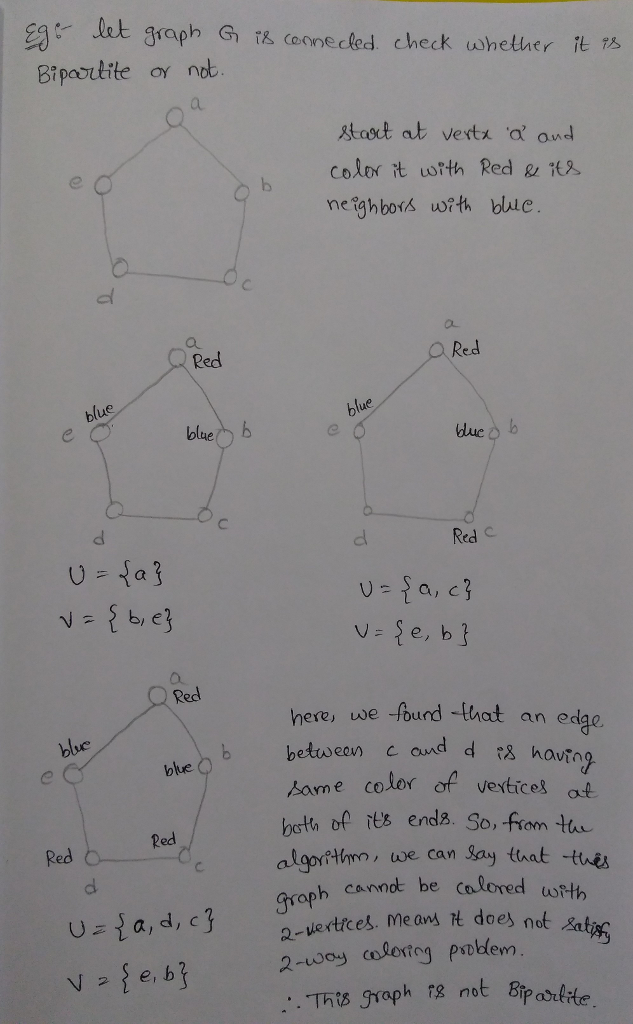 Eg:- let graph G is connected. check whether it is
Bipartite or not.
a
e
b
d
c
start at vertx 'a' and
color it with Red & its
neighbors with blue.
a
Red
blue
e
blue
b
d
c
U = {a}
V = {b, e}
a
Red
blue
e
blue
b
d
Red
c
U = {a, c}
V = {e, b}
a
Red
blue
e
blue
b
Red
d
Red
c
U = {a, d, c}
V = {e, b}
here, we found that an edge
between c and d is having
same color of vertices at
both of it's ends. So, from the
algorithm, we can say that this
graph cannot be colored with
2-vertices. Means it does not satisfy
2-way coloring problem.
∴ This graph is not Bipartite.